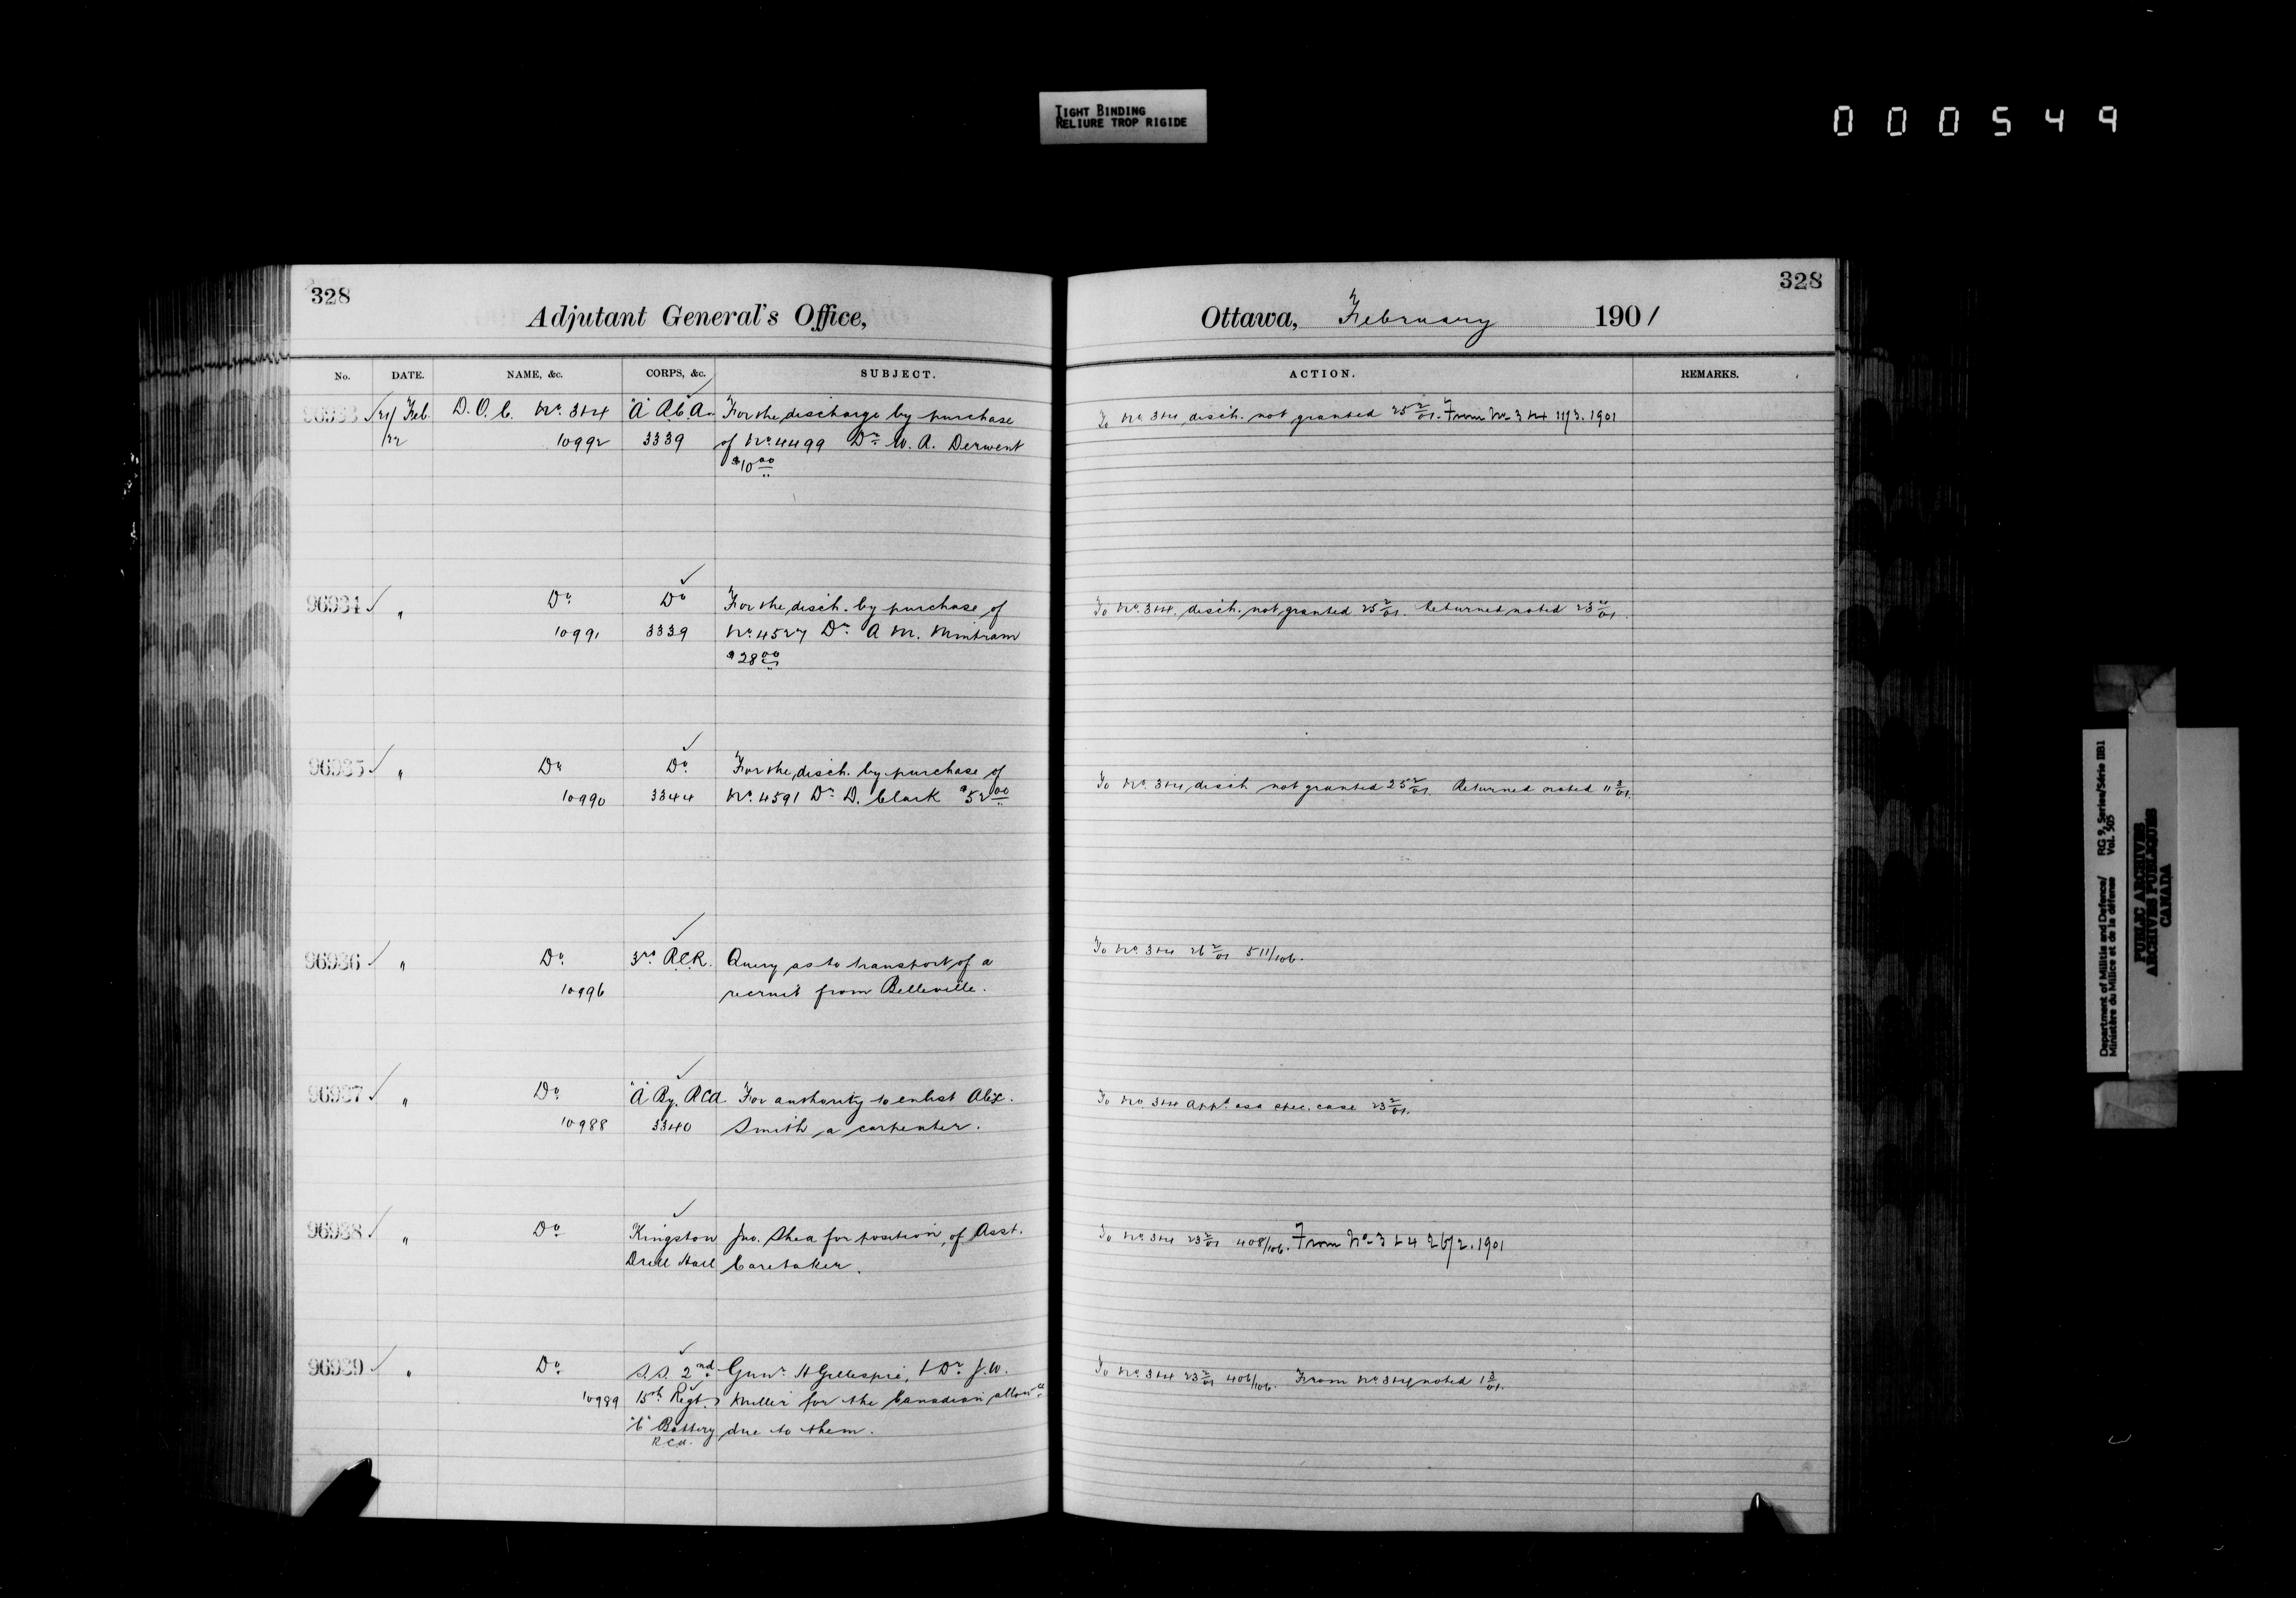 TIGHT BINDING
RELIURE TROP RIGIDE
000549
328
Adjutant General's Office,
No. DATE. NAME, &c. CORPS, &c. SUBJECT.
96933 21/ Feb. D.O.C. No. 3 & 4 "A" For the discharge by purchase
/22 10992 3339 of No. 4499 Dr. W. A. Derwent
$10.00
96934 " Do Do For the disch. by purchase of
10991 3339 No. 4527 Dr. A. M.
$28.00
96935 " Do Do For the disch. by purchase of
10990 3344 No. 4591 Dr. D. Clark $52.00
96936 " Do 3rd R.C.R. Query as to transport of a
10996 recruit from Belleville.
96937 " Do "A" By. RCA For authority to enlist Alex.
10988 3340 Smith a carpenter.
96938 " Do Kingston Jno. Shea for position of Asst.
Drill Hall Caretaker.
96939 " Do S.S. 2nd Gunr. H Gillespie, & Dr. J.W.
10989 15th Regt. Miller for the Canadian allowce
"C" Battery due to them.
R.C.A.
328
Ottawa, February 1901
ACTION. REMARKS.
To No. 3 & 4, disch. not granted 25 2/01. From No. 3 & 4 11/3.1901
To No. 3 & 4, disch. not granted 25 2/01. Returned noted 23 /01.
To No. 3 & 4, disch not granted 25 2/01. Returned noted 11 3/01.
To No. 3 & 4 26 2/01 511/106.
To No. 3 & 4 appd. as a spec. case 23 2/01.
To No. 3 & 4 23 2/01 408/106. From No. 3 & 4 26/2.1901
To No. 3 & 4 23 2/01 406/106. From No. 3 & 4, noted 1 3/01.
Department of Militia and Defence/ RG 9, Series/Série IIB1
Ministère du Milice et de la défense Vol. 505
PUBLIC ARCHIVES
ARCHIVES PUBLIQUES
CANADA